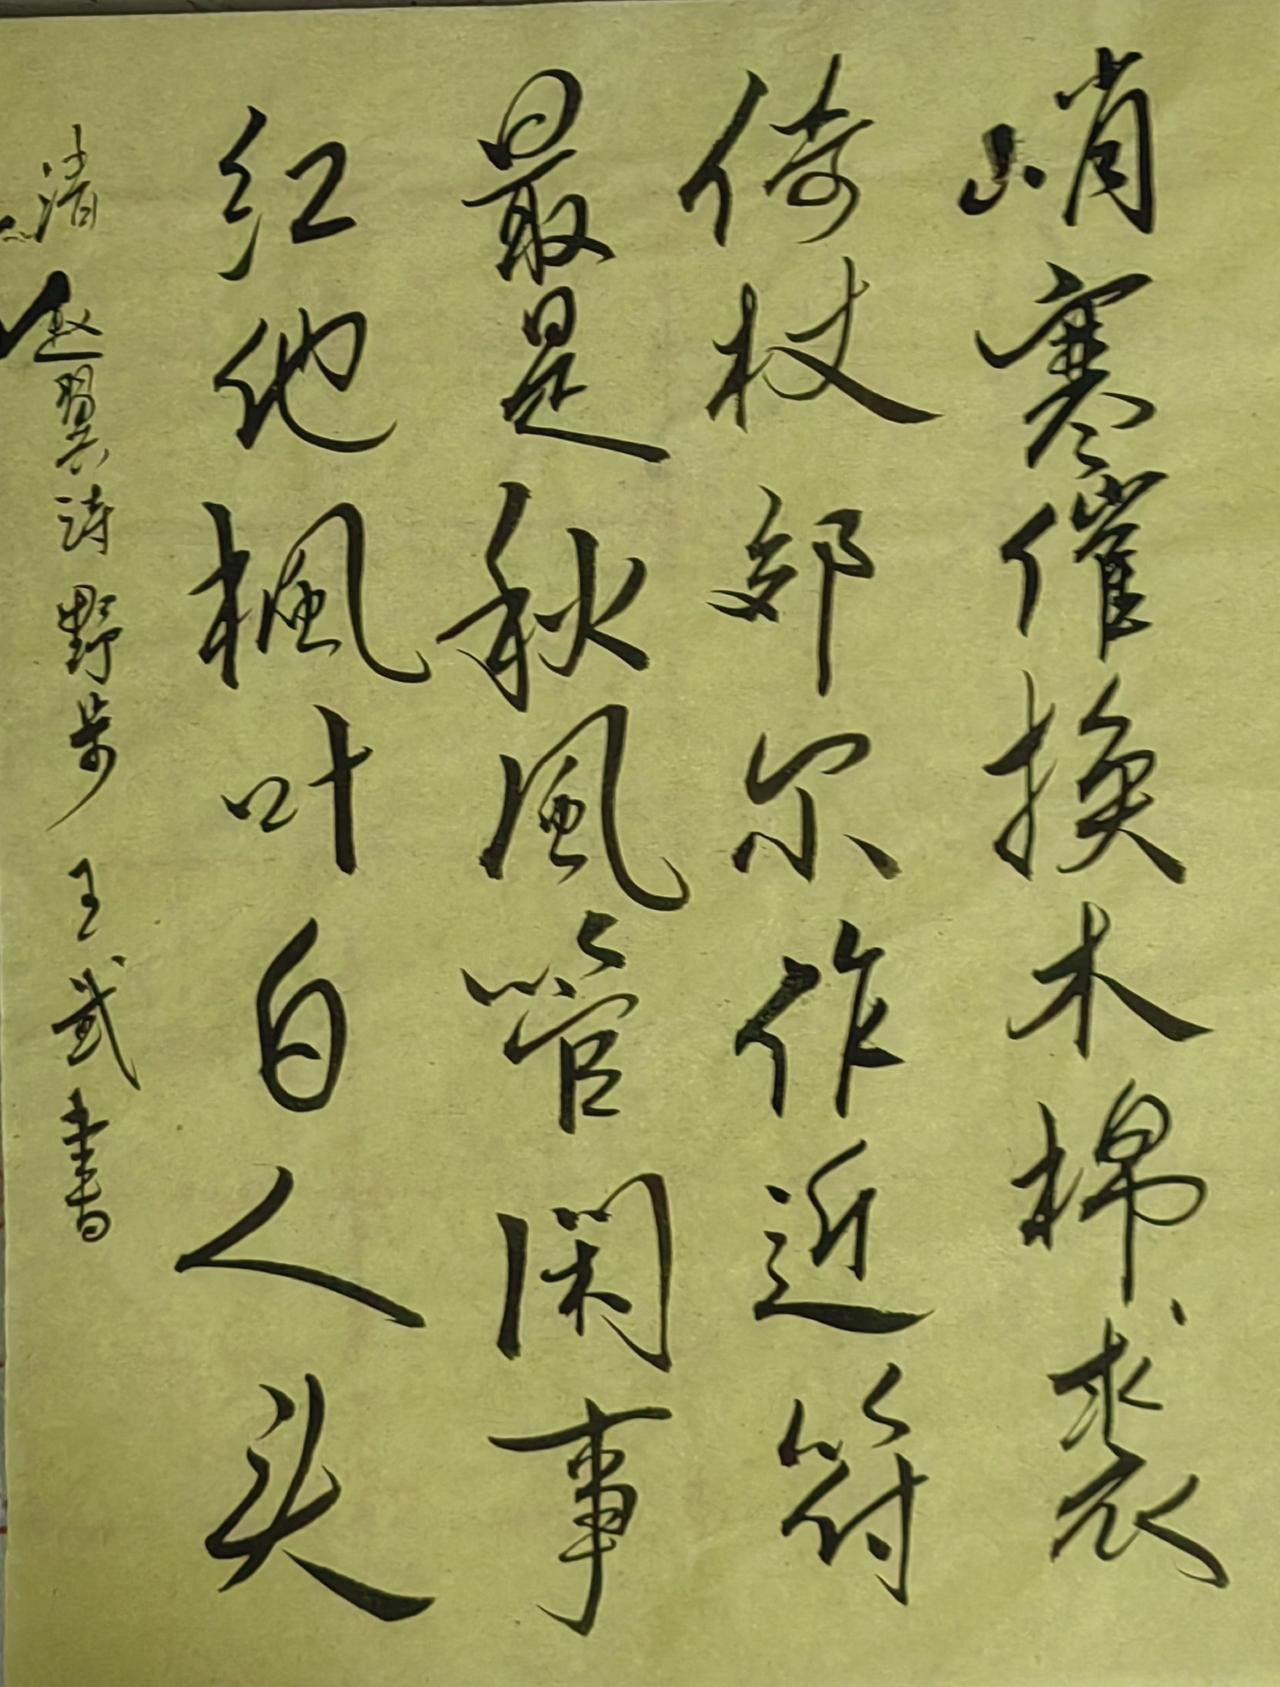 峭寒催换木棉裘
倚杖郊尔作近符
最是秋風管闲事
红他枫叶白人头
清赵翼诗野步王武書